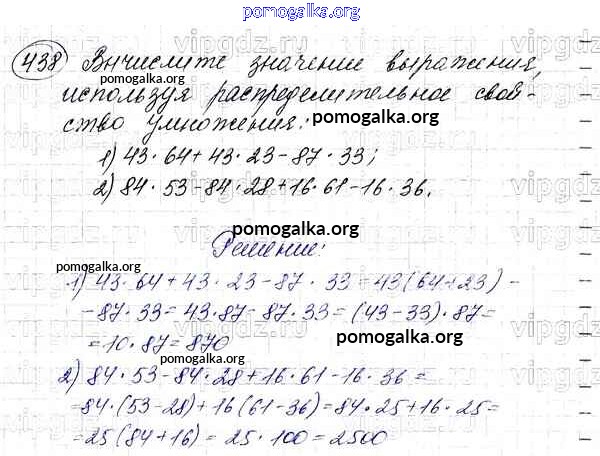 pomogalka.org
438 Вычислите значение выражения,
pomogalka.org
используя распределительное свой-
ство умножения: pomogalka.org
1) 43·64+43·23-87·33;
2) 84·53-84·28+16·61-16·36.
pomogalka.org
Решение:
pomogalka.org
1) 43·64+43·23-87·33=43(64+23)-
-87·33=43·87-87·33=(43-33)·87=
pomogalka.org
=10·87=870
pomogalka.org
2) 84·53-84·28+16·61-16·36=
=84·(53-28)+16(61-36)=84·25+16·25=
=25(84+16)=25·100=2500
pomogalka.org